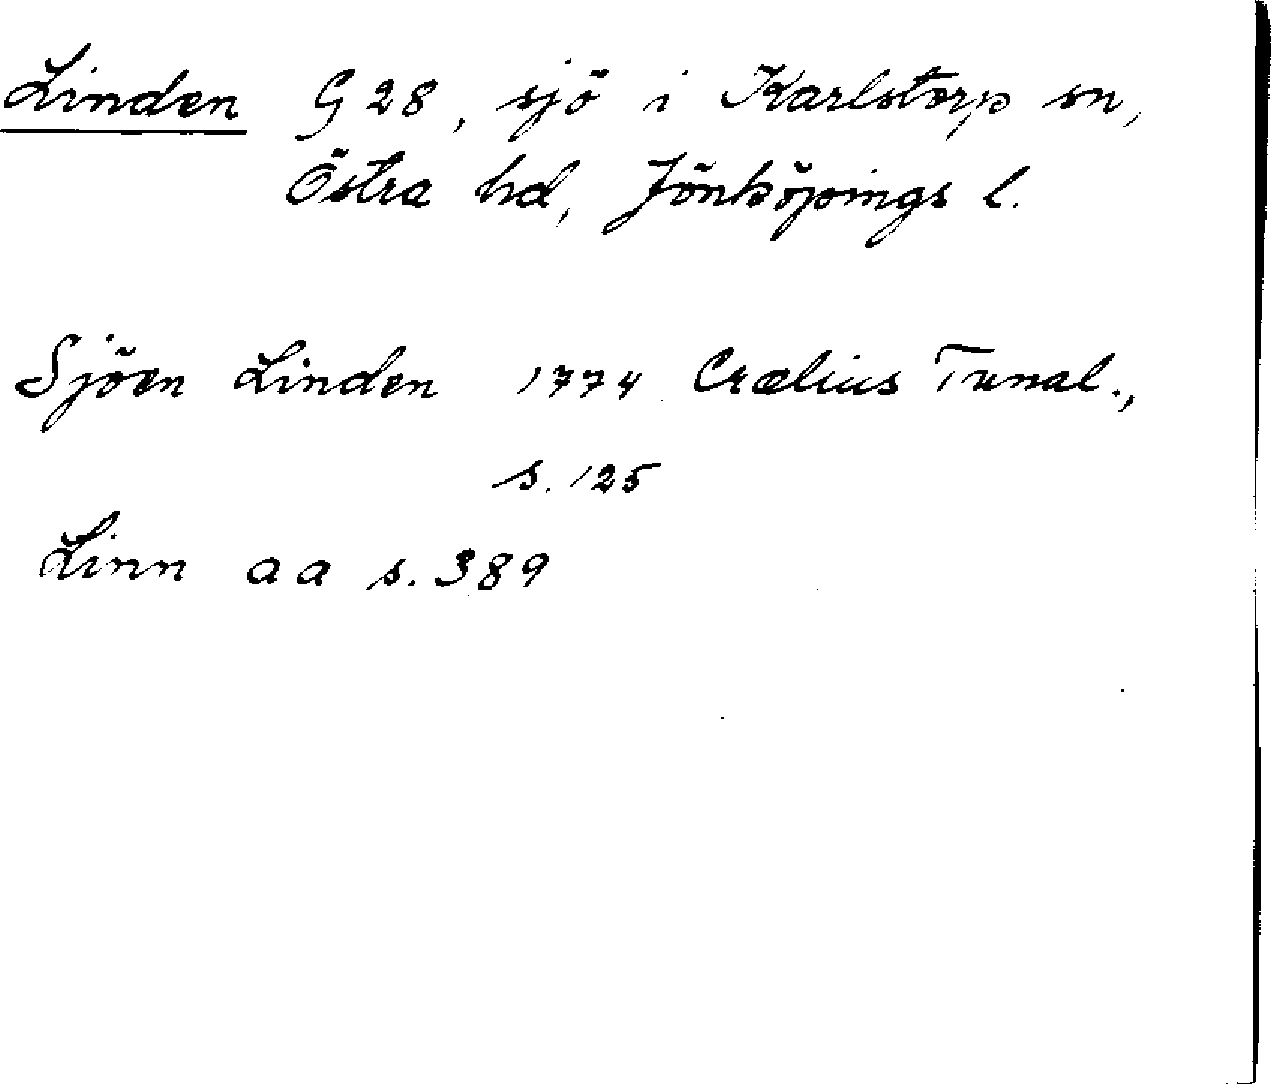 Linden G 28, sjö i Karlstorp sn,
Östra hd, Jönköpings l.
Sjöen Linden 1774 Crælius Tunal.,
s. 125
Linn aa s. 389